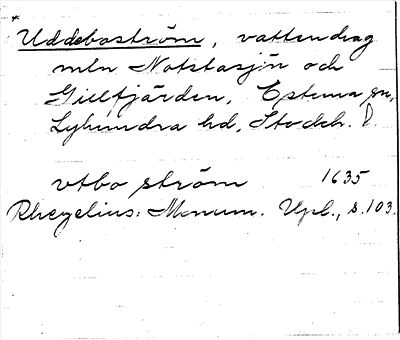 * Uddeboström, vattendrag
mln Notstasjön och
Gillfjärden, Estuna sn,
Lyhundra hd, Stockh.
vtbo ström 1635
Rhezelius: Monum. Upl., s. 103.